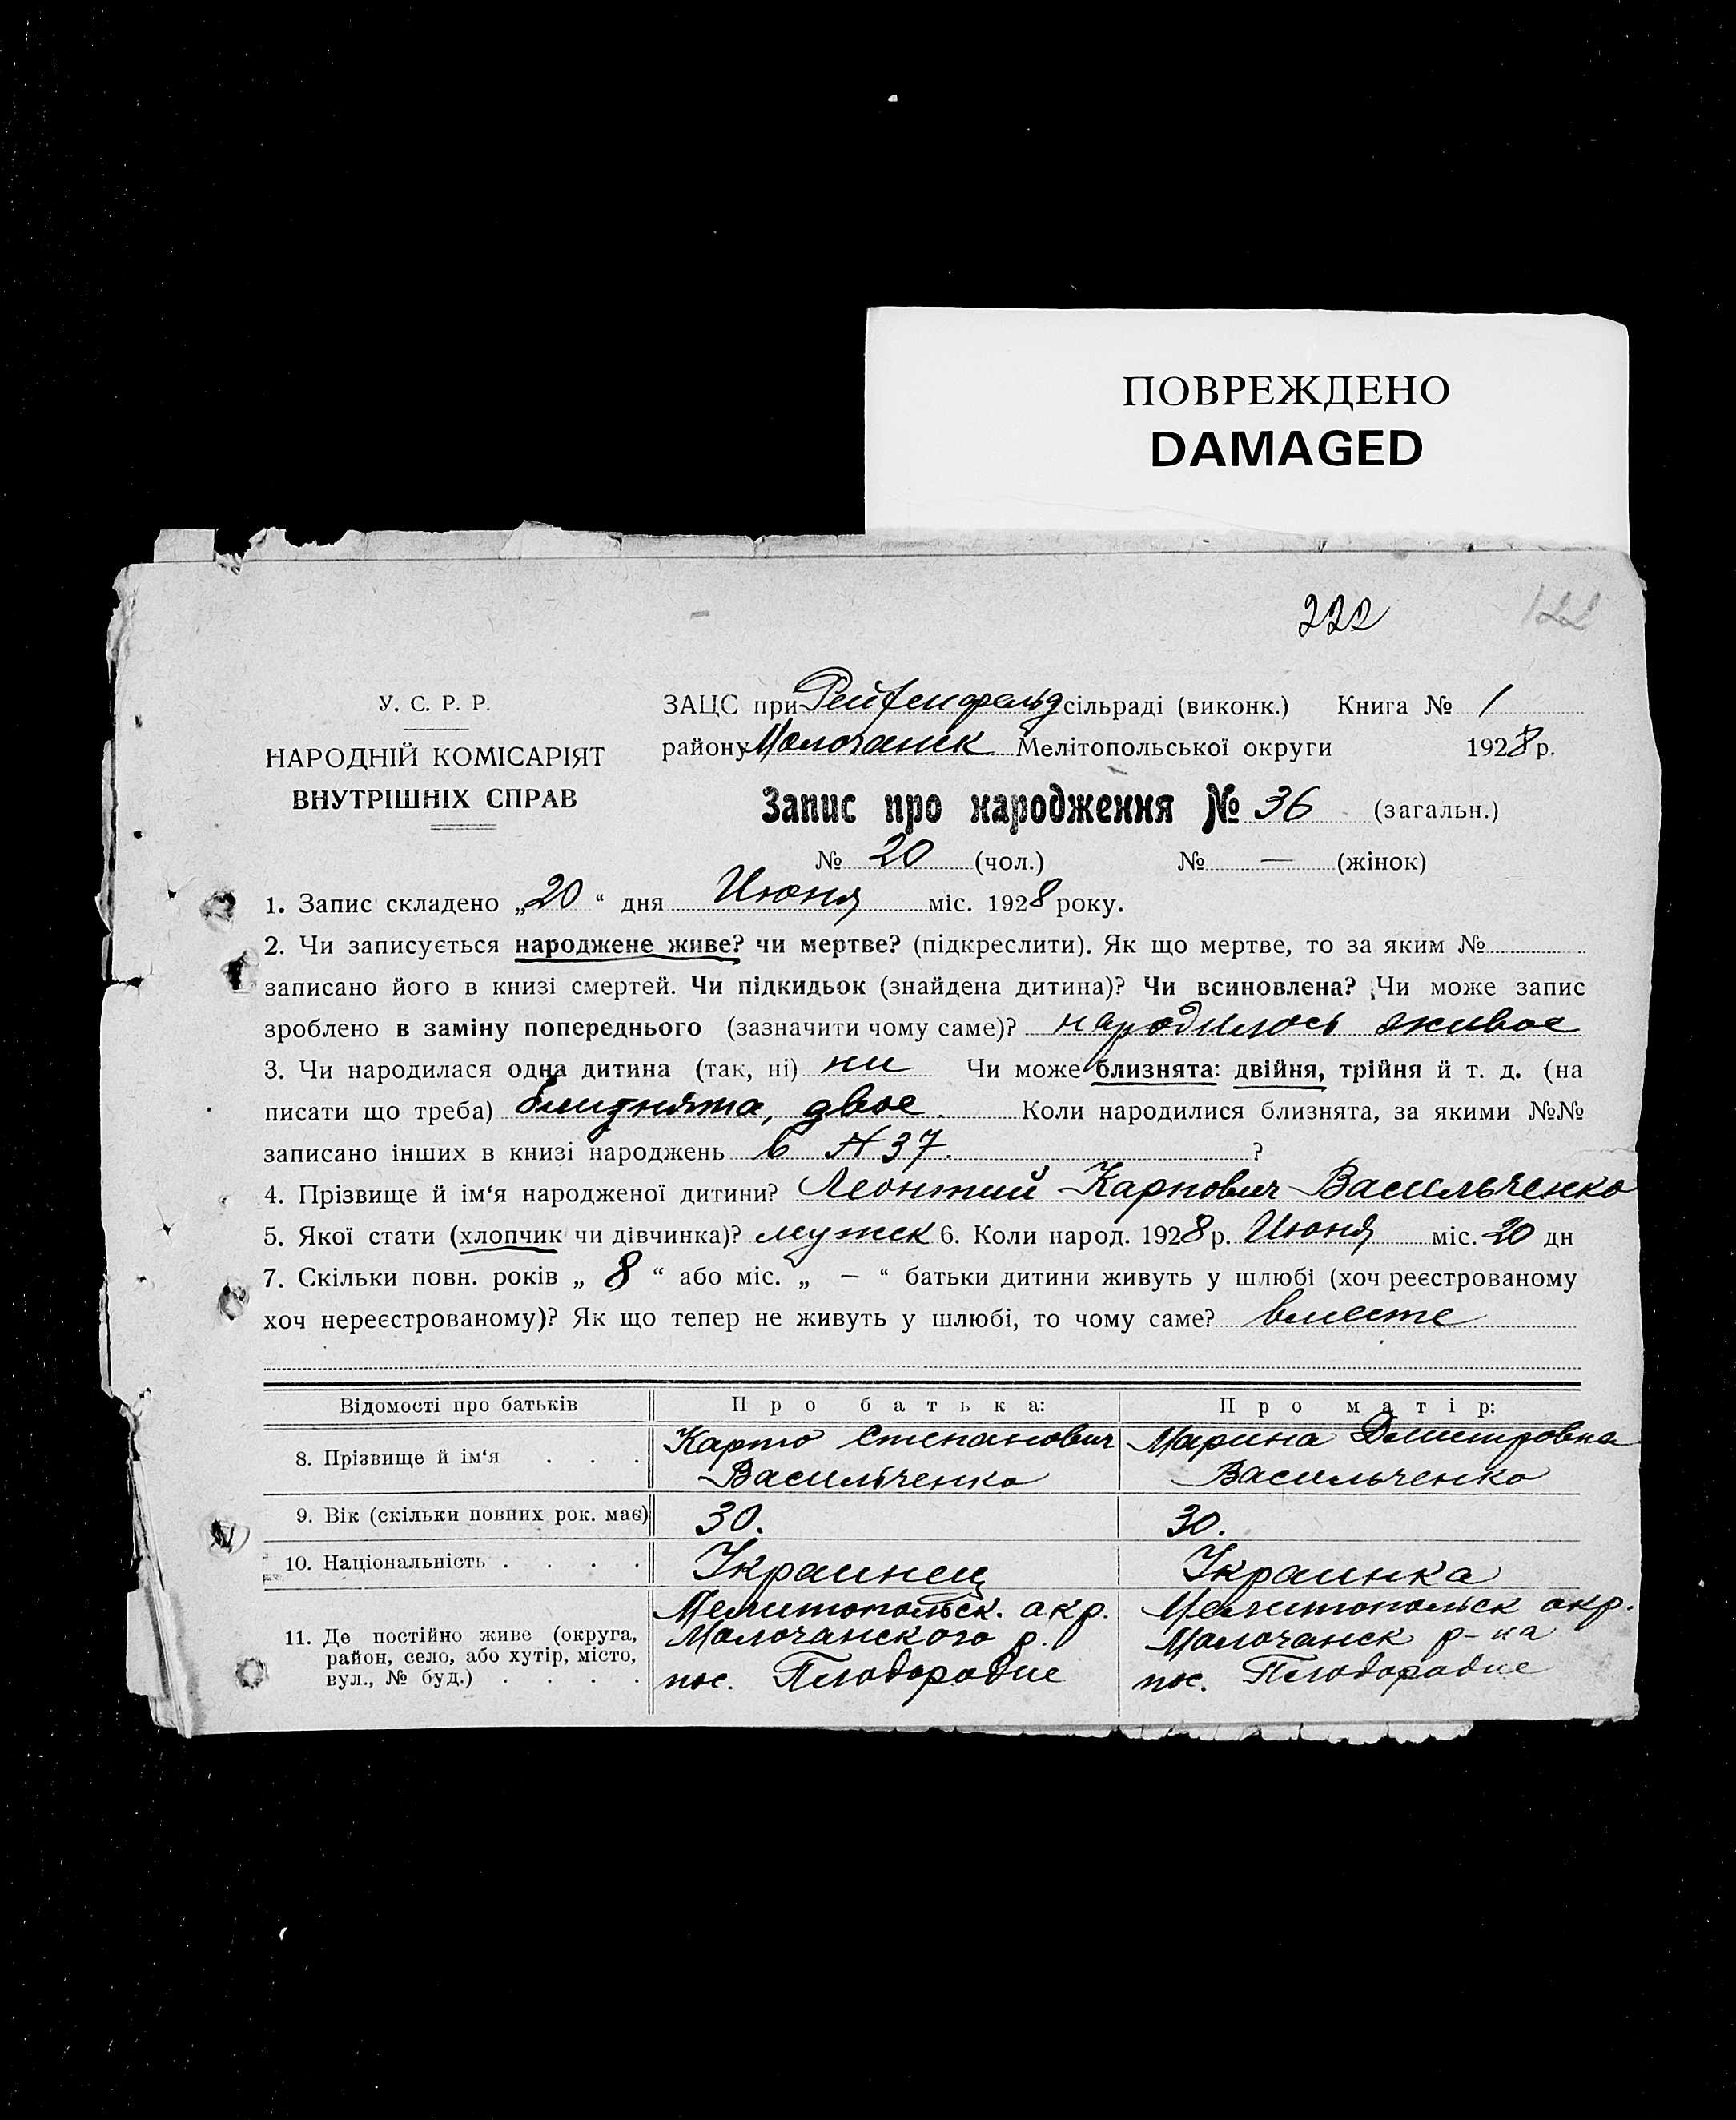 ПОВРЕЖДЕНО
DAMAGED
222
122
У. С. Р. Р.
НАРОДНІЙ КОМІСАРІЯТ
ВНУТРІШНІХ СПРАВ
ЗАЦС при Рейхенфельд сільраді (виконк.) Книга № 1
району Молочанск Мелітопольської округи 1928 р.
Запис про народження № 36 (загальн.)
№ 20 (чол.) № — (жінок)
1. Запис складено „20“ дня Июня міс. 1928 року.
2. Чи записується народжене живе? чи мертве? (підкреслити). Як що мертве, то за яким №
записано його в книзі смертей. Чи підкидьок (знайдена дитина)? Чи всиновлена? Чи може запис
зроблено в заміну попереднього (зазначити чому саме)? народилось живое
3. Чи народилася одна дитина (так, ні) ни Чи може близнята: двійня, трійня й т. д. (на
писати що треба) близнята, двое. Коли народилися близнята, за якими №№
записано інших в книзі народжень в №37. ?
4. Прізвище й ім‘я народженої дитини? Леонтий Карпович Васильченко
5. Якої стати (хлопчик чи дівчинка)? мужск 6. Коли народ. 1928 р. Июня міс. 20 дн
7. Скільки повн. років „ 8 “ або міс. „ — “ батьки дитини живуть у шлюбі (хоч реєстрованому
хоч нереєстрованому)? Як що тепер не живуть у шлюбі, то чому саме? вместе
Відомості про батьків Про батька: Про матір:
8. Прізвище й ім‘я . . . Карпо Степанович Марина Дмитровна
Васильченко Васильченко
9. Вік (скільки повних рок. має) 30. 30.
10. Національність . . . . Украинец Украинка
11. Де постійно живе (округа, Мелитопольск. окр. Мелитопольск окр.
район, село, або хутір, місто, Молочанского р. Молочанск р-на
вул., № буд.) . . . . пос. Плодородие пос. Плодородие